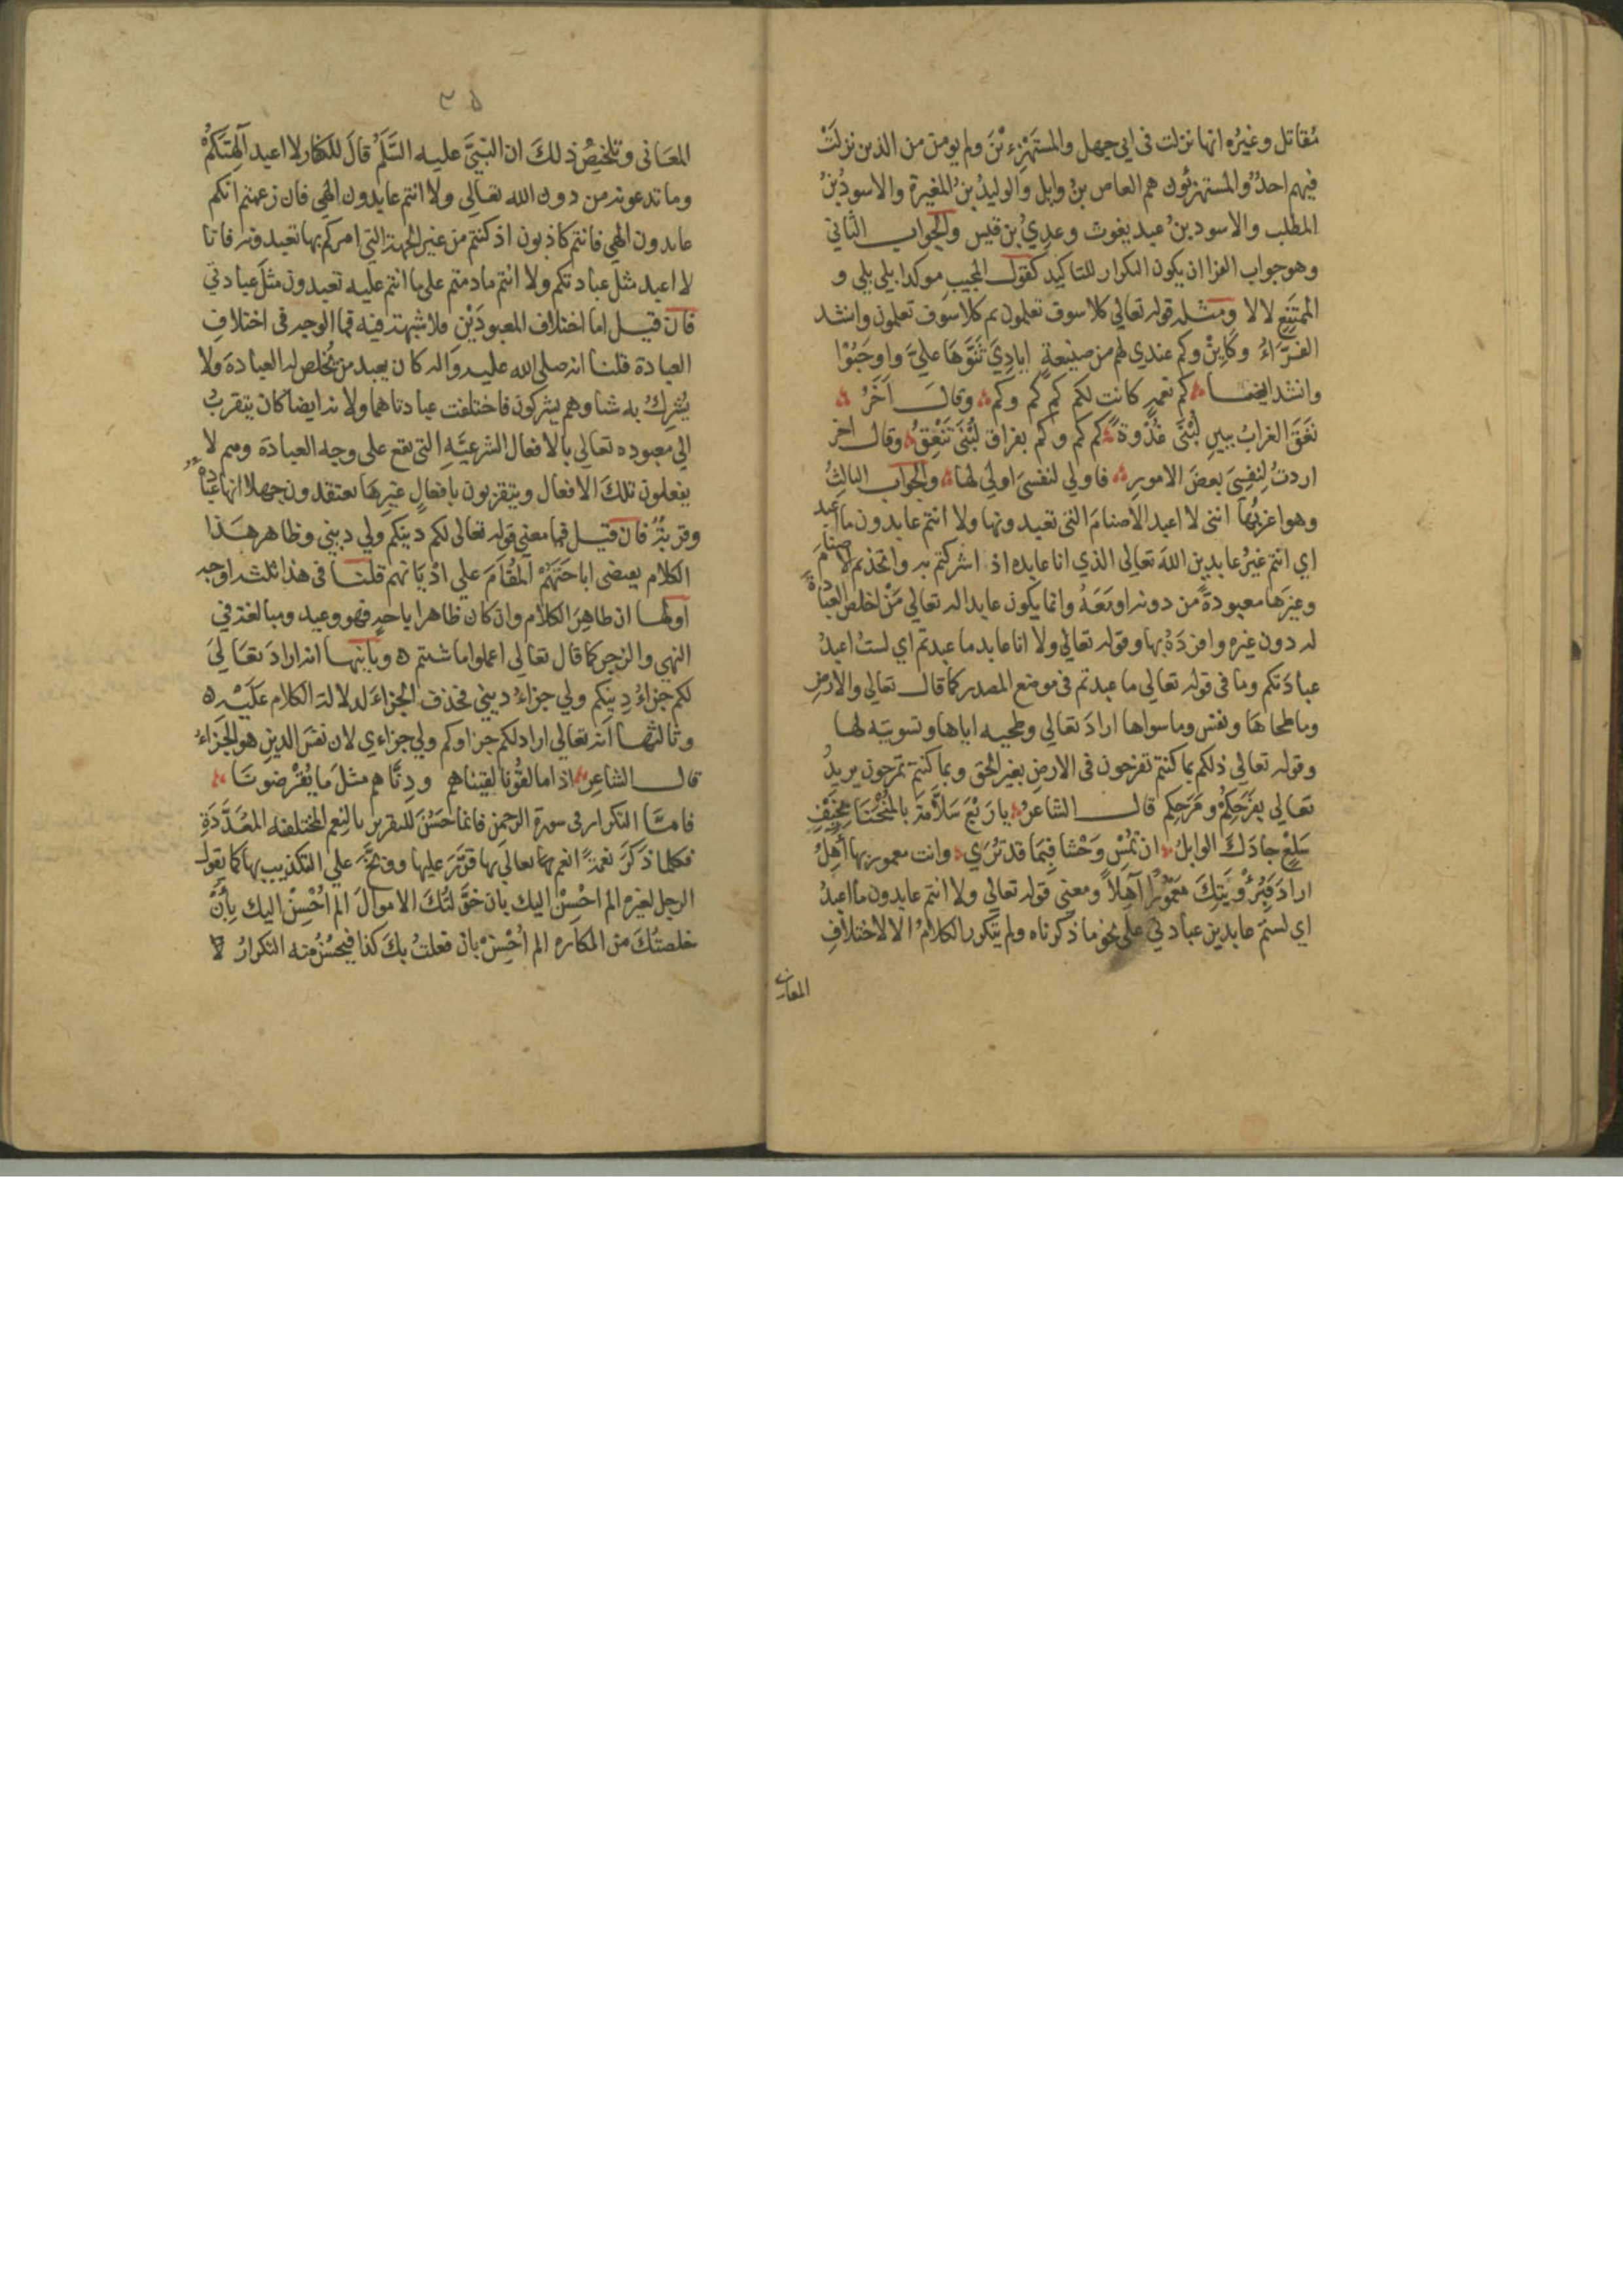 مُقاتل وغيُره انها نزلت فى ابي جهل والمستَهزِءِيْنَ ولم يومن من الذين نزلَتْ
فيهم احدٌ والمستهزئون هم العاص بنُ وايل والوليدُ بنُ المغيرة والاسودُ بنُ
المطلب والاسود بنُ عبد يغوث وعديُ بن قيس والجواب الثاني
وهو جواب الفرا ان يكون التكرار للتاكيد كقول المجيب موكدا بلي بلي و
الممتَنِعِ لا لا ومثله قوله تعالي كلا سوف تعلمون ثم كلا سوف تعلمون وانشد
الفَرَّاءُ وكاين وكم عندي لهم من صنيعةٍ ايادِيَ ثَنَّوْهَا عليَّ واوجَبُوْا
وانشد ايضا كم نعمةٍ كانت لكم كم كم وكم وقال آخَرُ
نَعَقَ الغرابُ ببينِ لُبْنَى غُدْوةً كم كم وكم بفراق لُبْنَى تَنْعِقُ وقال اخر
اردتُ لِنفسِيَ بعضَ الامورِ فاولي لنفسىَ اولى لها والجواب الثالثُ
وهو اغربُها اننى لا اعبد الاصنامَ التى تعبدونها ولا انتم عابدون ما اعبد
اي انتم غيرُ عابدين اللهَ تعالى الذي انا عابده اذ اشركتم به واتخذتم الاصنامَ
وغيرَها معبودةً من دونه او مَعَهُ وانما يكون عابدا له تعالي مَنْ اخلص العبادةَ
له دون غيره وافردَهُ بها وقوله تعالي ولا انا عابد ما عبدتم اي لستُ اعبدُ
عبادَتكم وما فى قوله تعالي ما عبدتم فى موضع المصدر كما قال تعالي والارضِ
وما طحاهَا ونفس وما سواها ارادَ تعالي وطحيه اياها وتسويتِه لها
وقوله تعالي ذلكم بما كنتم تفرحون فى الارضِ بغير الحق وبما كنتم تمرحون يريدُ
تعالي بفَرَحِكمْ ومَرَحِكم قال الشاعرُ يا رَبْعَ سَلاَّمةَ بالمُنْحَنَا بخَيْفِ
سَلْعٍ جادَكَ الوابلُ ان تُمْسِ وَحْشا فبِمَا قد تُرَي وانت معمور بها آهِلُ
ارادَ فبِرُؤْيَتِكَ مَعْمُوْرًا آهِلاً ومعني قوله تعالي ولا انتم عابدون ما اعبدُ
اي لستم عابدين عبادتي على نحو ما ذكرناه ولم يتكرر الكلامُ الا لاختلافِ
المعانى
٣٥
المعَانى وتلخيصُ ذلكَ ان النبىَّ عليه السَّلَمُ قالَ للكفار لا اعبد آلِهتَكمْ
وما تدعونه من دون الله تعالي ولا انتم عابدون الهي فان زعمتم انكم
عابدون الهي فانتم كاذبون اذ كنتم من غير الجهة التي امركم بها تعبدونه فانا
لا اعبد مثلَ عبادتكم ولا انتم ما دمتم على ما انتم عليه تعبدون مثلَ عبادتي
فان قيل اما اختلاف المعبودَيْنِ فلا شبهة فيه فما الوجه فى اختلافِ
العبادة قلنا انه صلى الله عليه واله كان يعبد من يُخلص له العبادةَ ولا
يُشركُ به شيا وهم يشركون فاختلفت عبادتاهما ولانه ايضا كان يتقربُ
الي معبوده تعالي بالافعال الشرعيَّةِ التى تقع على وجه العبادة وهم لا
يفعلون تلكَ الافعال ويتقربون بافعالٍ غيرِهَا يعتقدون جهلا انها عبادةٌ
وقربَةٌ فان قيل فما معني قوله تعالى لكم دينكم ولي ديني وظاهر هَذا
الكلام يقتضى اباحَتَهُمْ المُقَامَ علي اَدْيَانهم قلنا فى هذا ثلثه اوجه
اولها ان ظاهِرَ الكلام وان كان ظاهرا باحةٍ فهو وعيد ومبالغة في
النهي والزجر كما قال تعالي اعملوا ما شيتم ه وثانيها انه ارادَ تَعَاليَ
لكم جزاءُ دِينِكم ولي جزاءُ ديني فحذف الجزاءَ لدلالة الكلام عَلَيْه ه
وثالثها اَنه تعالي اراد لكم جزاوكم ولي جزاءي لان نفسَ الدينِ هو الجزَاءُ
قال الشاعِر اذا ما لقُوْنا لقِيناهم ودِنَّاهم مثلَ ما يُقْرِضونَا
فامَّا التكرار فى سورة الرحمن فانما حَسُنَ للتقرير بالنِعم المختلفه المعَدَّدَةِ
فكلما ذكَرَ نعمَةً انعم بها تعالي بها قرَّرَ عليها ووبَّخَ علي التكذيب بها كما يقولُ
الرجل لغيره الم اُحْسِنْ اليك بان خوَّلتُكَ الاموالَ الم اُحْسِنْ اليك بِاَنْ
خلصتُكَ من المكاره الم اُحْسِنْ بان فعلتُ بكَ كذا فيحسُنُ منه التكرارُ لا